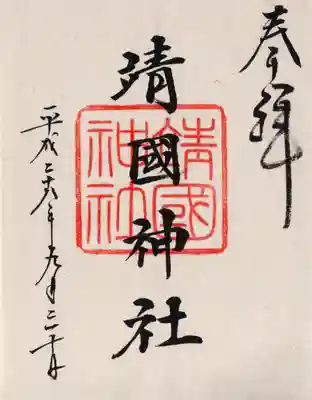 奉拝
靖國神社
靖國神社
平成二十六年九月二十日